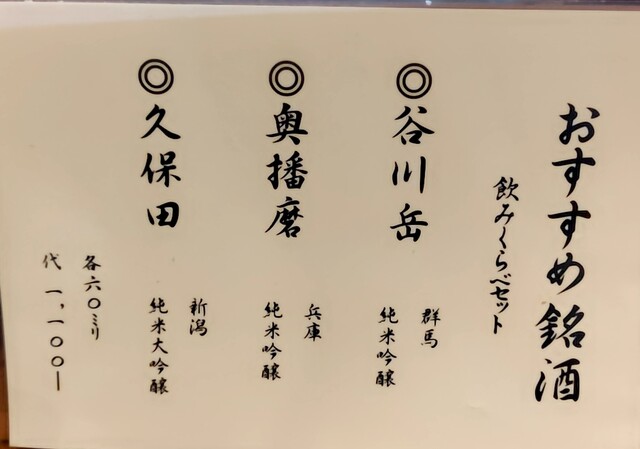 おすすめ銘酒
飲みくらべセット
◎谷川岳
群馬
純米吟醸
◎奥播磨
兵庫
純米吟醸
◎久保田
新潟
純米大吟醸
各六〇ミリ
代 一,一〇〇ー